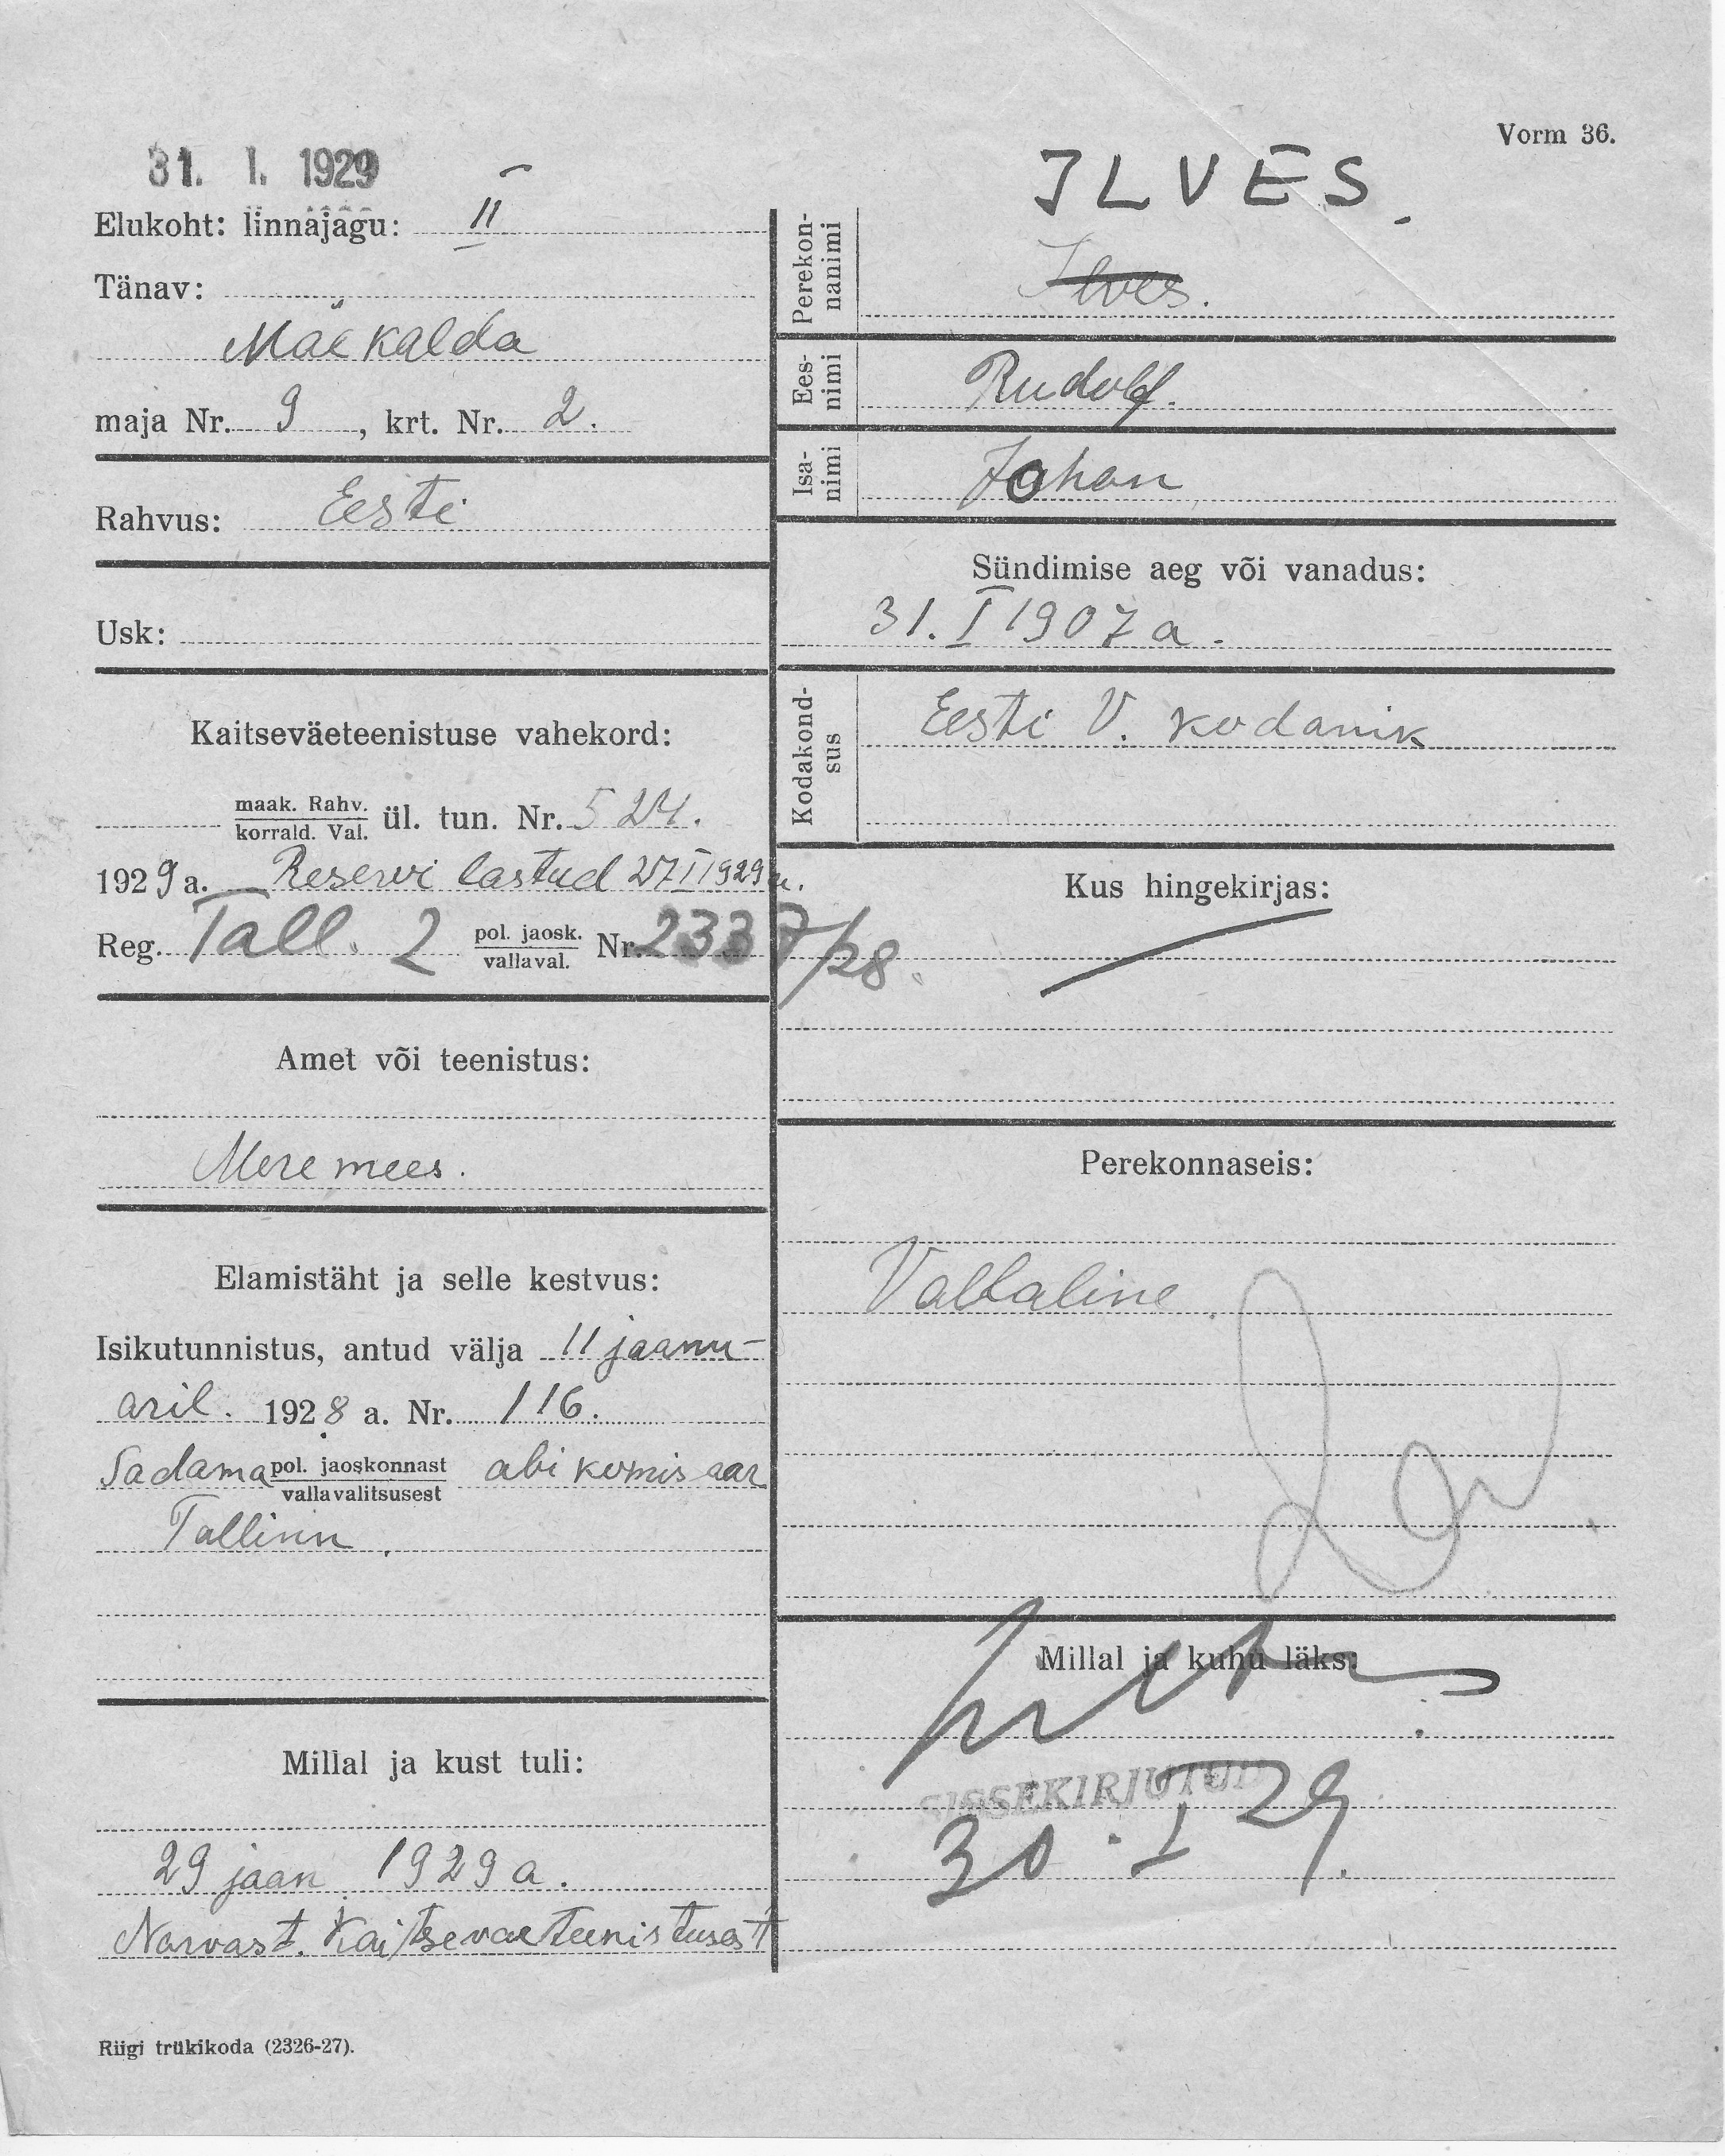 Vorm 36.
31. I. 1929
Elukoht: linnajagu: II
Tänav:
Mäekalda
maja Nr. 9, krt. Nr. 2.
Rahvus: Eesti
Usk:
Kaitseväeteenistuse vahekord:
maak. Rahv.
korrald. Val. ül. tun. Nr. 524.
1929 a. Reservi lastud 27 I 1929 a.
Reg. Tall. 2 pol. jaosk. Nr. 2337/28.
vallaval.
Amet või teenistus:
Meremees.
Elamistäht ja selle kestvus:
Isikutunnistus, antud välja 11 jaanu-
aril. 1928 a. Nr. 116.
Sadama pol. jaoskonnast abikomisaar
vallavalitsusest
Tallinn.
Millal ja kust tuli:
29 jaan. 1929 a.
Narvast. Kaitsevaeteenistusest
Riigi trükikoda (2326-27).
ILVES.
Perekon-
nanimi
Ilves.
Ees-
nimi
Rudolf.
Isa-
nimi
Johan
Sündimise aeg või vanadus:
31. I 1907 a.
Kodakond-
sus
Eesti V. kodanik
Kus hingekirjas:
Perekonnaseis:
Vallaline.
Millal ja kuhu läks:
SISSEKIRJUTUD
30. I 29.